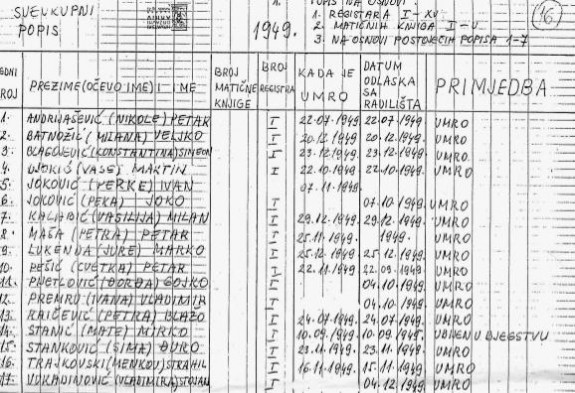 SVEUKUPNI
POPIS
1949.
1. POPIS NA OSNOVI
1. REGISTARA I - XV
2. MATIČNIH KNIGA I - V
3. NA OSNOVI POSTOJEĆIH POPISA 1-7
16
REDNI BROJ PREZIME (OČEVO IME) I IME BROJ MATIČNE KNJIGE BROJ REGISTRA KADA JE UMRO DATUM ODLASKA SA RADILIŠTA PRIMJEDBA
1. ANDRIJAŠEVIĆ (NIKOLE) PETAR I 22.07.1949. 22.07.1949. UMRO
2. BATNOŽIĆ (MILANA) VELJKO I 20.12.1949. 20.12.1949. UMRO
3. BLAGOJEVIĆ (KONSTANTINA) SIMEON I 23.12.1949. 23.12.1949. UMRO
4. DJOKIĆ (VASE) MARTIN I 22.10.1949. 22.10.1949. UMRO
5. JOKOVIĆ (PERKE) IVAN 07.11.1949.
6. JOKOVIĆ (PEKA) JOKO I 07.10.1949. UMRO
7. KALJABIĆ (VASILIJA) MILAN I 29.12.1949. 29.12.1949. UMRO
8. MAŠA (PETRA) PETAR I 25.11.1949. 1949. UMRO
9. LUKENDA (JURE) MARKO I 25.12.1949. 25.12.1949. UMRO
10. PEŠIĆ (CVETKA) PETAR I 22.11.1949. 22.09.1949. UMRO
11. (ĐORĐA) GOJKO I 04.10.1949. UMRO
12. PREMRU (IVANA) VLADIMIR I 04.10.1949. UMRO
13. RAIČEVIĆ (PETRA) BLAŽO I 24.07.1949. 24.07.1949. UMRO
14. STANIĆ (MATE) MIRKO I 10.09.1949. 10.09.1949. UBIJEN U BJEGSTVU
15. STANKOVIĆ (SIMA) ĐURO I 23.11.1949. 23.11.1949. UMRO
16. TRAJKOVSKI (MENKOV) STRAHIL I 16.11.1949. 15.11.1949. UMRO
17. VUKADINOVIĆ (VLADIMIRA) STOJAN I 04.12.1949. UMRO